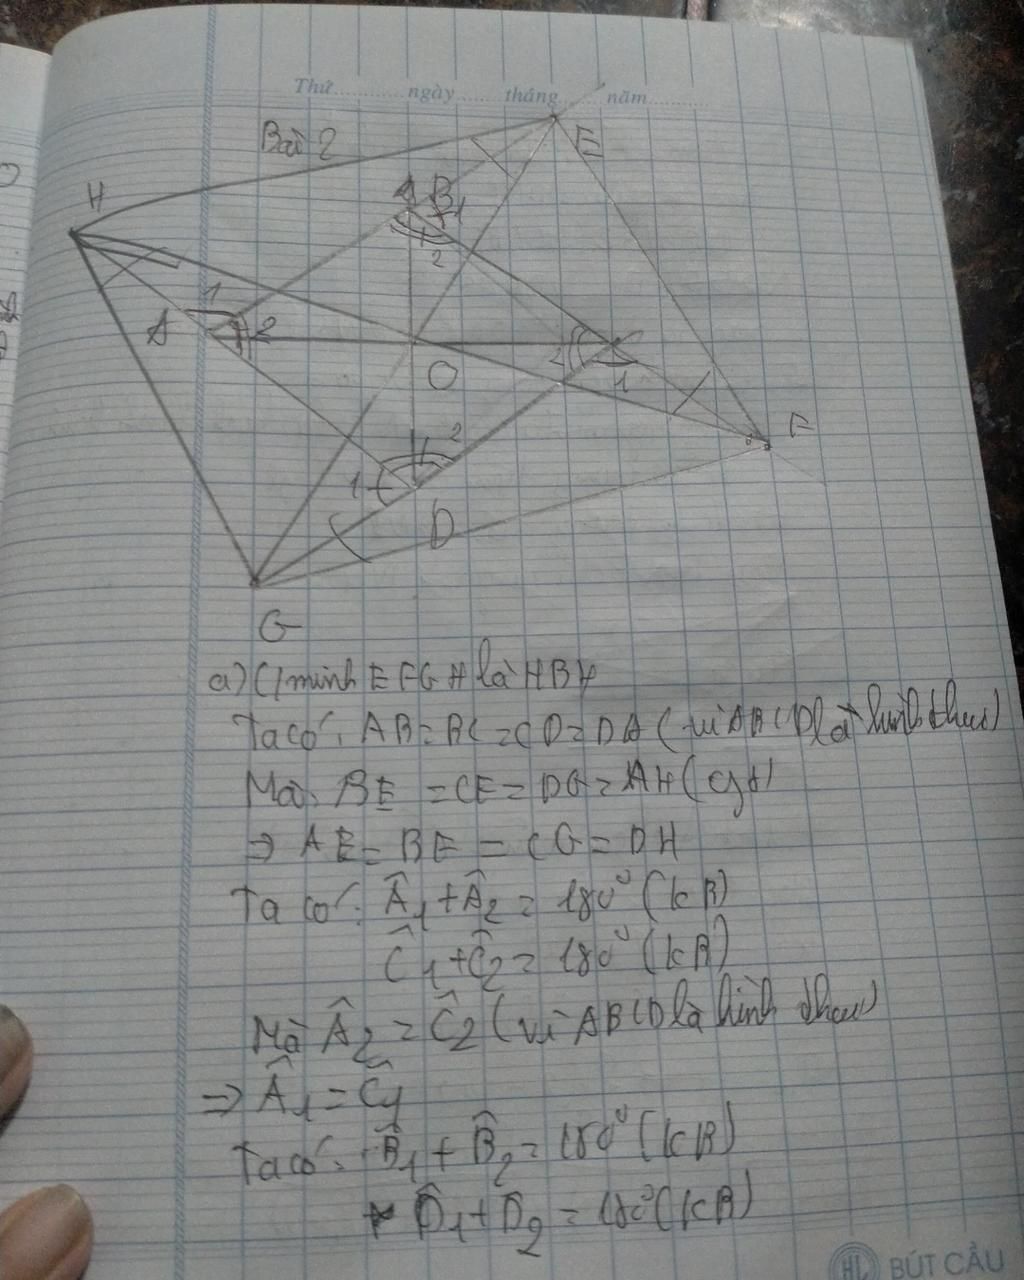 Thứ ngày tháng năm
Bài 2
E
H
B
1
2
1
A
2
2
1
O
F
2
1
D
G
a) C/minh EFGH là HBH
Ta có: AB = BC = CD = DA (vì ABCD là hình thoi)
Mà: BE = CF = DG = AH (gt)
=> AE = BF = CG = DH
Ta có: Â1 + Â2 = 180° (kB)
Ĉ1 + Ĉ2 = 180° (kB)
Mà Â2 = Ĉ2 (vì ABCD là hình thoi)
=> Â1 = Ĉ1
Ta có: B̂1 + B̂2 = 180° (kB)
D̂1 + D̂2 = 180° (kB)
HL BÚT CẦU